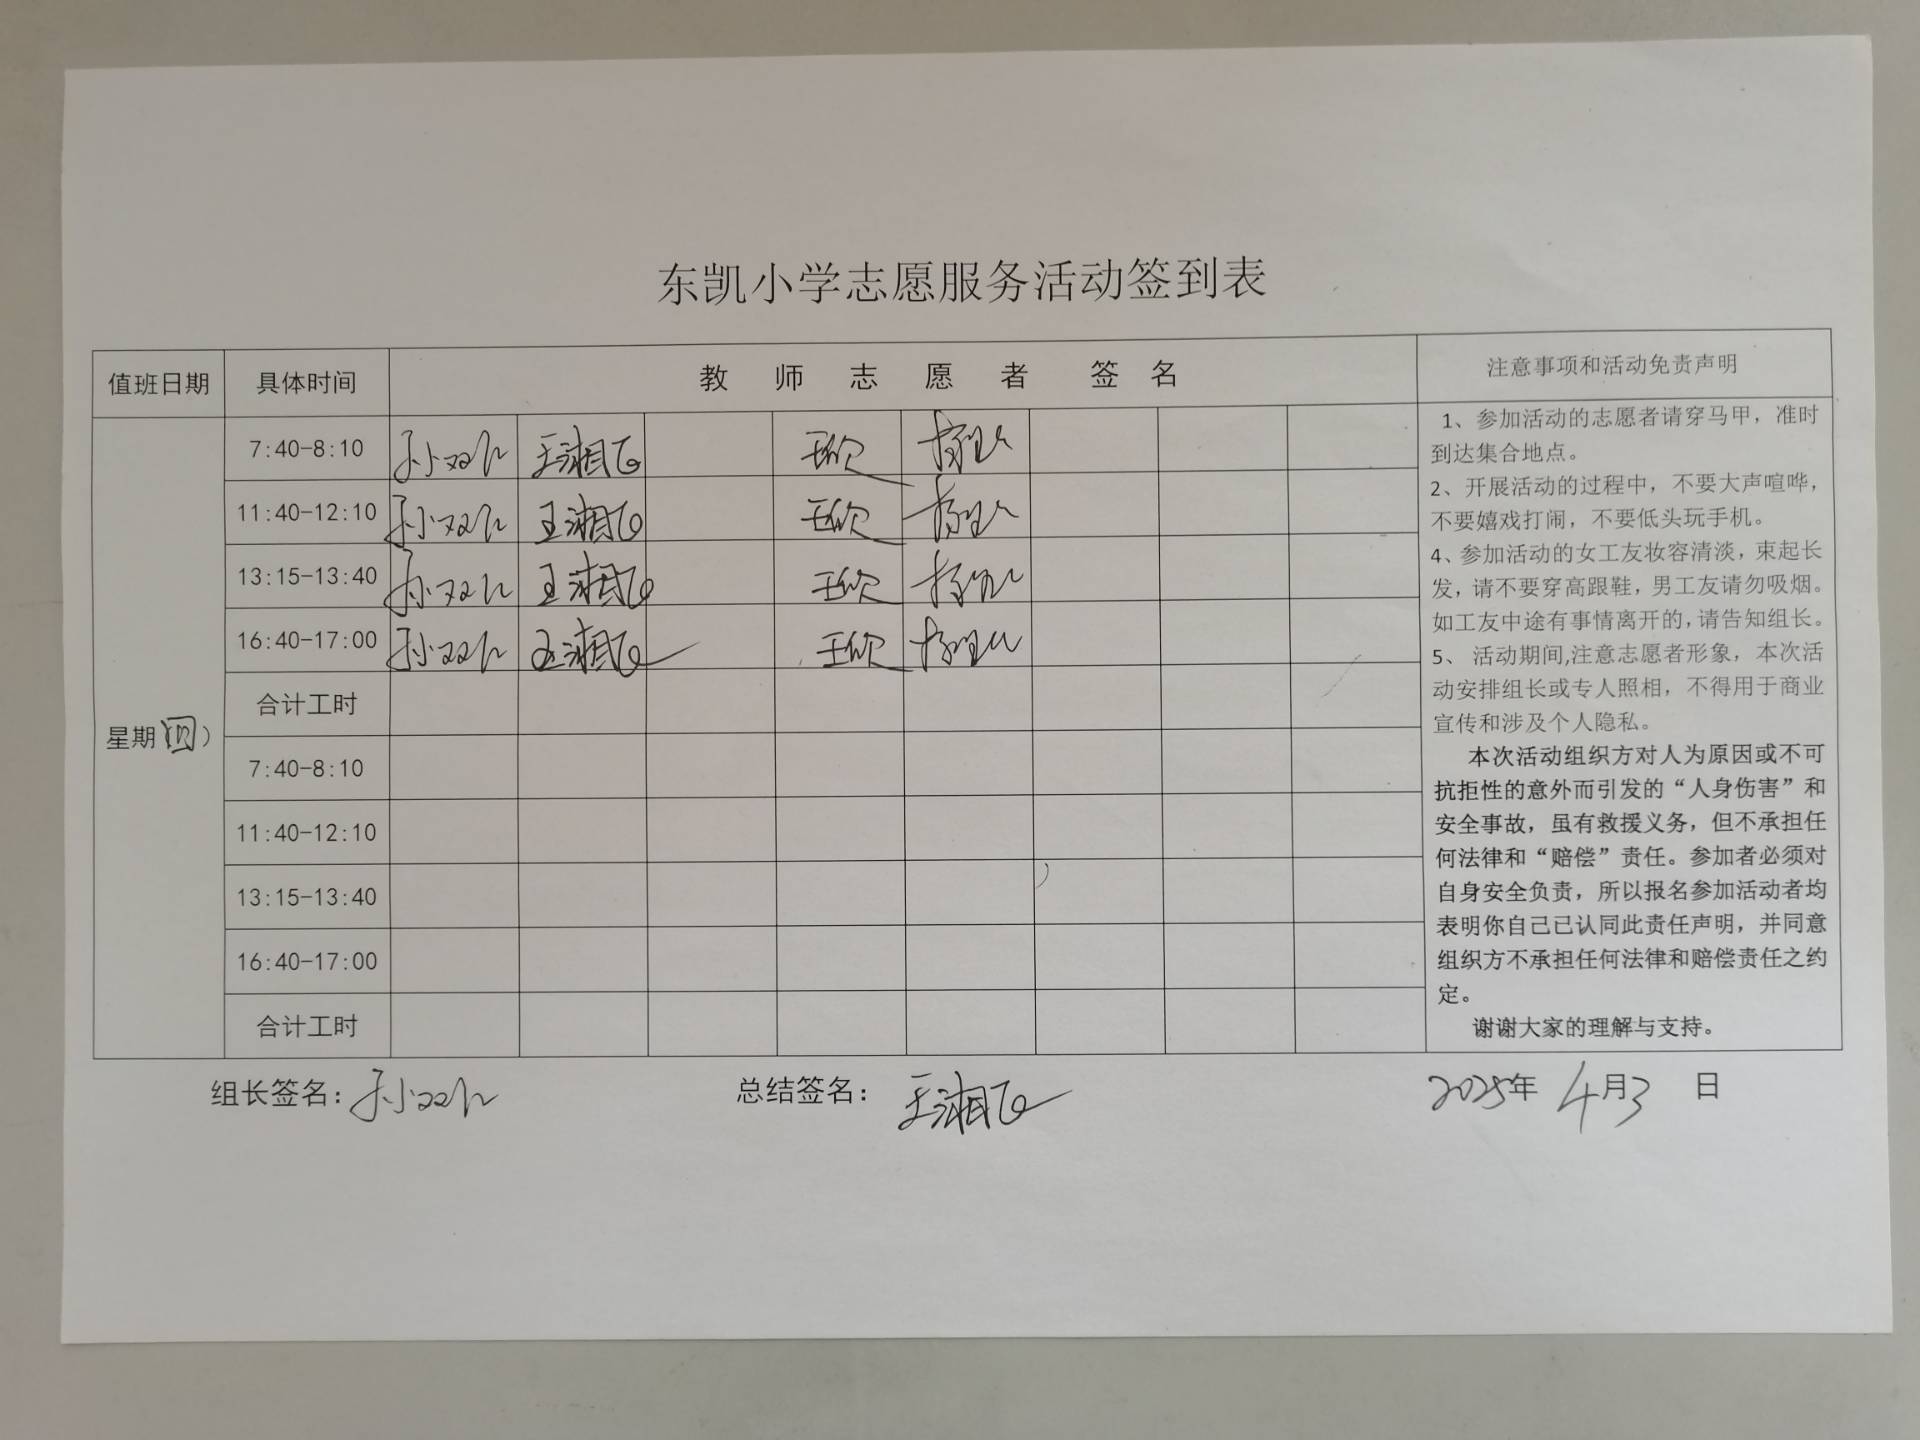 东凯小学志愿服务活动签到表
值班日期 具体时间 教师志愿者 签名 注意事项和活动免责声明
星期(四)
7:40-8:10 孙双 王湘飞 王欣
11:40-12:10 孙双 王湘飞 王欣
13:15-13:40 孙双 王湘飞 王欣
16:40-17:00 孙双 王湘飞 王欣
合计工时
7:40-8:10
11:40-12:10
13:15-13:40
16:40-17:00
合计工时
1、参加活动的志愿者请穿马甲，准时
到达集合地点。
2、开展活动的过程中，不要大声喧哗，
不要嬉戏打闹，不要低头玩手机。
4、参加活动的女工友妆容清淡，束起长
发，请不要穿高跟鞋，男工友请勿吸烟。
如工友中途有事情离开的,请告知组长。
5、 活动期间,注意志愿者形象，本次活
动安排组长或专人照相，不得用于商业
宣传和涉及个人隐私。
本次活动组织方对人为原因或不可
抗拒性的意外而引发的“人身伤害”和
安全事故，虽有救援义务，但不承担任
何法律和“赔偿”责任。参加者必须对
自身安全负责，所以报名参加活动者均
表明你自己已认同此责任声明，并同意
组织方不承担任何法律和赔偿责任之约
定。
谢谢大家的理解与支持。
组长签名：孙双 总结签名：王湘飞 2025年 4月3 日